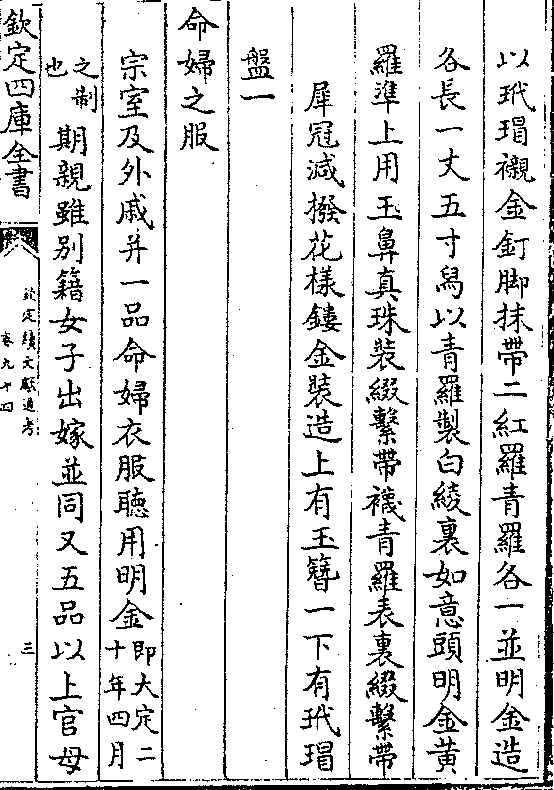 以玳瑁襯金釘脚抹帶二紅羅青羅各一並明金造
各長一丈五寸舄以青羅製白綾裏如意頭明金黄
羅準上用玉鼻真珠裝綴繫帶襪青羅表裏綴繫帶
犀冠減撥花様鏤金裝造上有玉簪一下有玳瑁
盤一
命婦之服
宗室及外戚并一品命婦衣服聽用明金即大定二十年四月
之制也期親雖别籍女子出嫁並同又五品以上官母
欽定四庫全書
欽定續文獻通考
卷九十四
三